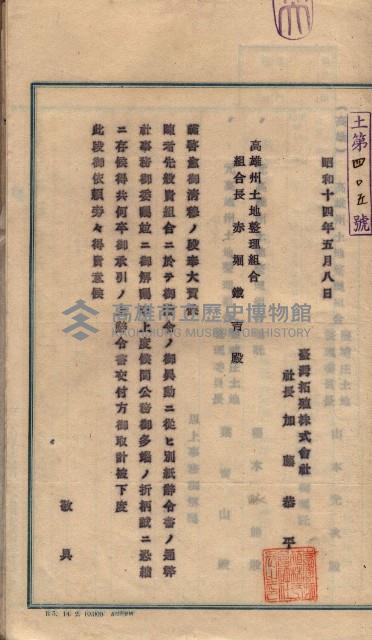 土第四〇五號
昭和十四年五月八日
臺灣拓殖株式會社
社長 加藤恭平
高雄州土地整理組合
組合長 赤堀鐵吉殿
謹啓愈御清穆ノ段奉大賀候
陳者先般貴組合ニ於テ御組合ノ御異動ニ從ヒ別紙辭令書ノ通弊
社事務御委囑竝ニ御解囑上度候間公務御多端ノ折柄誠ニ恐縮
ニ存候得共何卒御承引ノ辭令書交付方御取計被下度
此段御依願旁々得貴意候
敬具
高雄市立歷史博物館
KAOHSIUNG MUSEUM OF HISTORY